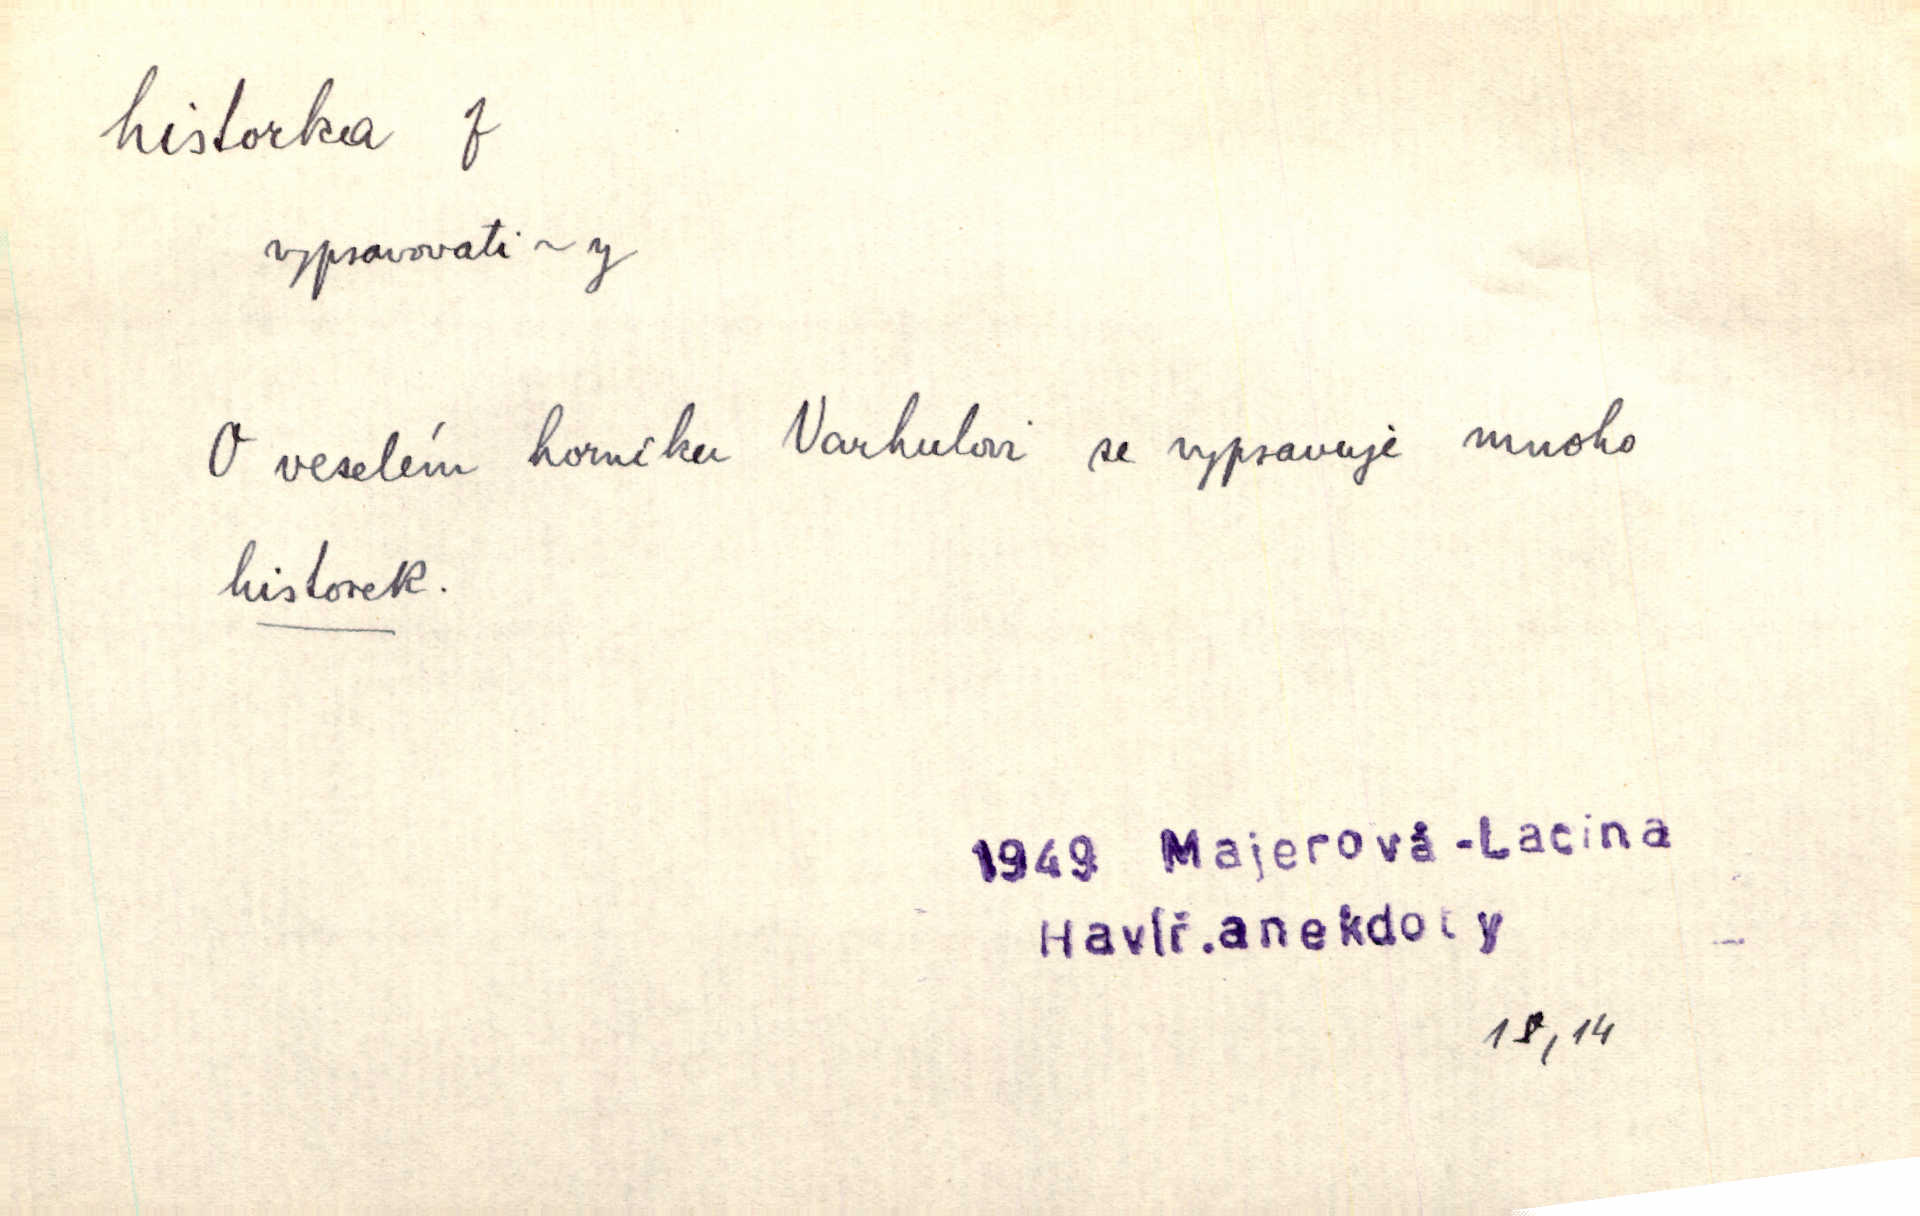 historka f
vypravovati ~ y
O veselém horníku Varhulovi se vypravuje mnoho
historek.
1949 Majerová-Lacina
Havíř.anekdoty
18,14